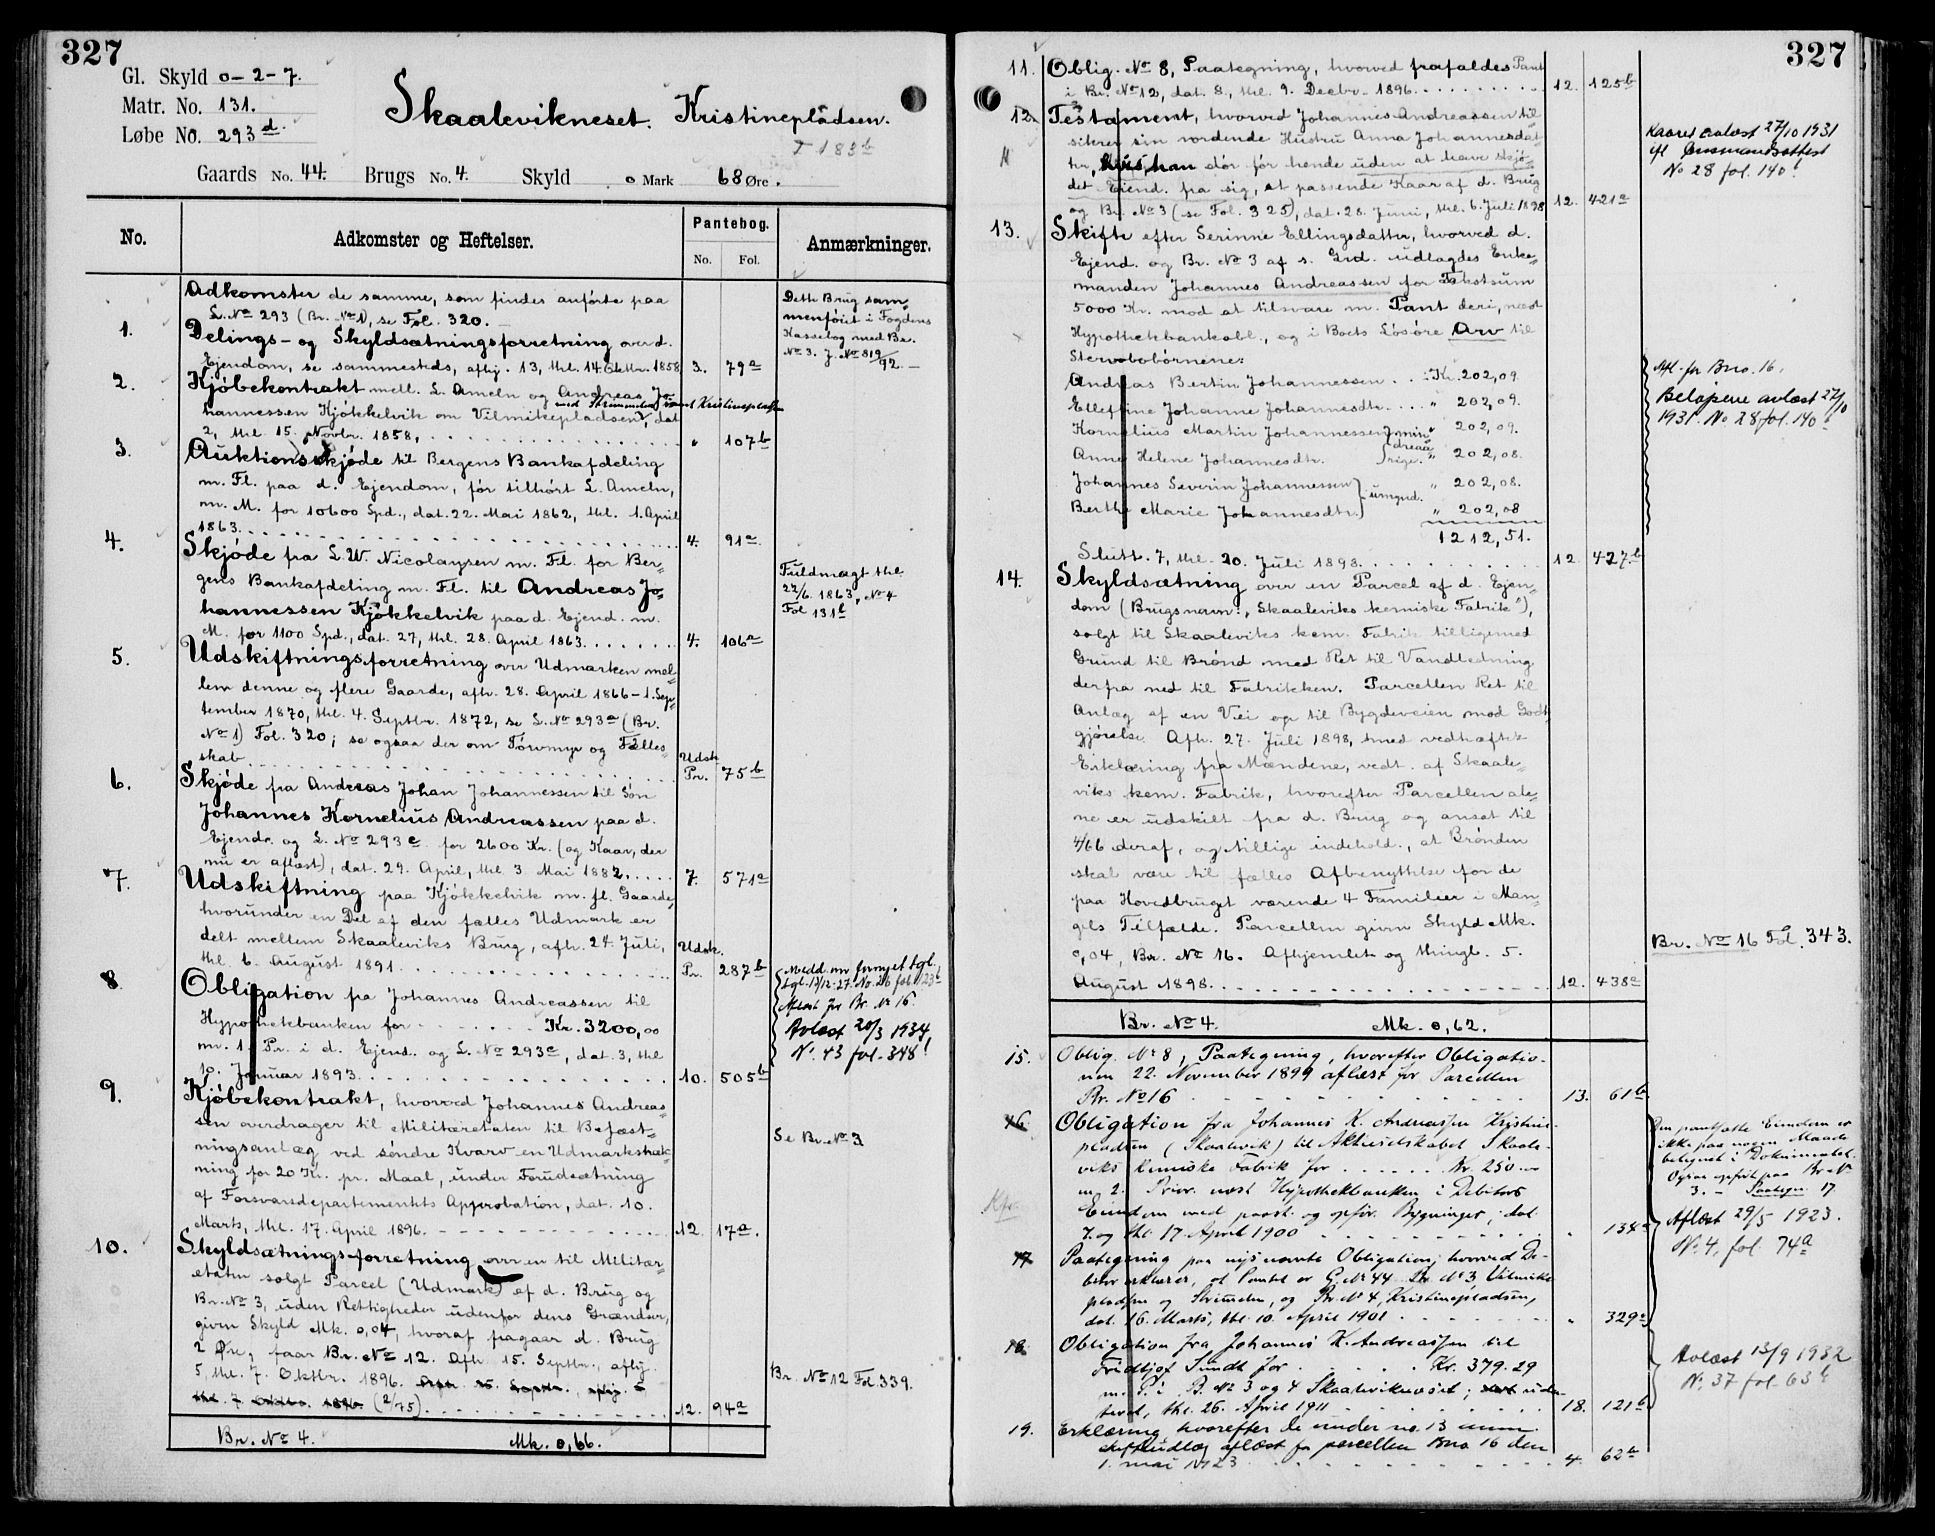 327
Gl. Skyld 0-2-7.
Matr. No. 131.
Løbe No. 293d.
Skaalevikneset. Kristineplådsen.
T 183b
Gaards No. 44. Brugs No. 4. Skyld 0 Mark 68 Øre.
No. Adkomster og Heftelser. Pantebog. No. Fol. Anmærkninger.
Adkomster de samme, som findes anførte paa
L. No 293 (Br. No 1), se Fol. 320.
1. Delings- og Skyldsætningsforretning over d.
Ejendom, se sammesteds, afhj. 13, thl. 14 Oktbr. 1858 3. 79a
Dette Brug sam-
menføiet i Fogdens
Kassebog med Br.
No 3. J. No 819/92.
2. Kjøbekontrakt mell. L. Ameln og Andreas Jo-
med Strimmelen samt Kristinepladsen
hannessen Kjøkkelvik om Vilmikepladsen, dat
2, thl. 15. Novbr. 1858, " 107b
3. Auktionsskjøde til Bergens Bankafdeling
m. Fl. paa d. Ejendom, før tilhørt L. Ameln,
m. M. for 10600 Spd., dat. 22. Mai 1862, thl. 1. April
1863. 4. 91a
4. Skjøde fra L. W. Nicolaysen m. Fl. for Ber-
gens Bankafdeling m. Fl. til Andreas Jo-
hannessen Kjøkkelvik paa d. Ejend. m.
M. for 1100 Spd., dat. 27, thl. 28. April 1863. 4. 106a
Fuldmagt thl.
22/6. 1863, No 4
Fol 131b
5. Udskiftningsforretning over Udmarken mel-
lem denne og flere Gaarde, afh. 28. April 1866 - 1. Sep-
tember 1870, thl. 4. Septbr. 1872, se L. No 293a (Br.
No 1) Fol. 320; se ogsaa der om Torvmyr og Fælles-
skab. Udsk. Pr. 75b
6. Skjøde fra Andreas Johan Johannessen til Søn
Johannes Kornelius Andreassen paa d.
Ejendr. og L. No 293c for 2600 Kr. (og Kaar, der
nu er aflæst), dat. 29. April, thl. 3 Mai 1882. 7. 571a
7. Udskiftning paa Kjøkkelvik m. fl. Gaarde,
hvorunder en Del af den fælles Udmark er
delt mellem Skaaleviks Brug, afh. 24. Juli,
thl. 6. August 1891. Udsk. Pr. 287b
8 Obligation fra Johannes Andreassen til
Hypothekbanken for Kr. 3200,00
m. 1. Pr. i d. Ejend. og L. No 293c, dat. 3, thl
10. Januar 1893. 10. 505b
Medd. om fornyet tgl.
tgl. 13/12-27. No. 26 fol. 123b
Aflæst for Br. No 16.
Avlæst 20/3 1934
No. 43 fol. 348!
9. Kjøbekontrakt, hvorved Johannes Andreas-
sen overdrager til Militæretaten til Befæst-
ningsanlæg ved søndre Kvarv en Udmarksstræk-
ning for 20 Kr. pr. Maal, under Forudsætning
af Forsvarsdepartementets Approbation, dat. 10.
Marts, thl. 17. April 1896. 12. 17a.
Se Br. No 3
10. Skyldsætningsforretning over en til Militær-
etaten solgt Parcel (Udmark) af d. Brug og
Br. No 3, uden Rettigheder udenfor dens Grændser,
given Skyld Mk. 0,04, hvoraf fragaar d. Brug
2 Øre, faar Br. No 12. Afh. 15. Septbr., afhj.
5, thl. 7. Oktbr. 1896. Afh. 15. Septbr., afhj. 5
thl. 7. Oktbr. 1896. (2/75). 12. 94a
Br. No 12 Fol. 339.
Br. No 4. Mk. 0,66.
327
11. Oblig. No 8, Paategning, hvorved frafaldes Pant
i Br. No 12, dat. 8., thl. 9. Decbr. 1896. 12. 125b
12. Testament, hvorved Johannes Andreassen til-
sikrer sin vordende Hustru Anna Johannesdat-
ter, hvis han dør før hende uden at have skjø-
det Ejend. fra sig, et passende Kaar af d. Brug
og Br. No 3 (se Fol. 325), dat. 28. Juni, thl. 6. Juli 1898 12. 421a
Kaaret avlæst 27/10 1931
No 28 fol. 140!
13. Skifte efter Serinne Ellingsdatter, hvorved d.
Ejend. og Br. No 3 af s. Grd. udlagdes Enke-
manden Johannes Andreassen for Takstsum
5000 Kr. mod at tilsvare m. Pant deri, næst
Hypothekbankobl., og i Boets Løsøre Arv til
Stervbobørnene:
Andreas Bertin Johannessen Kr. 202,09.
Elleftine Johanne Johannesdtr. " 202,09.
Kornelius Martin Johannessen } min- " 202,09.
Anne Helene Johannesdtr. } dreaa- rige. " 202,08.
Johannes Severin Johannessen } umynd. " 202,08.
Berthe Marie Johannesdtr. " 202,08
1212,51.
Slutt. 7, thl. 20. Juli 1898. 12 427b
Afl. for Bno. 16.
Beløpene avlæst 27/10
1931. No 28 fol. 140!
14. Skyldsætning over en Parcel af d. Ejen-
dom (Brugsnavn: „Skaaleviks kemiske Fabrik"),
solgt til Skaaleviks kem. Fabrik tilligemed
Grund til Brønd med Ret til Vandledning
derfra ned til Fabrikken. Parcellen Ret til
Anlæg af en Vei op til Bygdeveien mod Godt-
gjørelse. Afh. 27. Juli 1898, med vedhæftet
Erklæring fra Mændene, vedt. af Skaale-
viks kem. Fabrik, hvorefter Parcellen ale-
ne er udskilt fra d. Brug og ansat til
4/66 deraf, og tillige indehold., at Brønden
skal være til fælles Afbenyttelse for de
paa Hovedbruget værende 4 Familier i Man-
gels Tilfælde. Parcellen given Skyld Mk.
0,04, Br. No 16. Afhjemlet og thingl. 5.
August 1898. 12. 438a
Br. No 16 Fol. 343.
Br. No 4. Mk. 0,62.
15. Oblig. No 8, Paategning, hvorefter Obligatio-
nen 22. November 1899 aflæst for Parcellen
Br. No 16 13. 61b
16. Obligation fra Johannes K. Andreassen Kristine-
pladsen (Skaalevik) til Aktieselskabet Skaale-
viks kemiske Fabrik for Kr. 250.00
m. 2. Prior. næst Hypothekbanken i Debitors
Eiendom med paast. og opfør. Bygninger, dat.
7. og thl. 17 April 1900 " 134a
Kfr.
Den pantsatte Eiendom er
ikke paa nogen Maade
betegnet i Dokumentet.
Ogsaa opført paa Br. No
3. - Paategn. 17.
Aflæst 29/5 1923.
No. 4, fol. 74a
17. Paategning paa nysnævnte Obligation, hvorved De-
bitor erklærer, at Pantet er G. No 44 Br. No 3, Vilmike-
pladsen og Strimelen, og Br. No 4, Kristinepladsen,
dat. 16. Marts, thl. 10. April 1901 " 329a
18. Obligation fra Johannes K. Andreassen til
Fridtjof Sundt for Kr. 379.29
m. P. i B. No 3 og 4 Skaaleviknæset;
thl. 26. April 1911 18. 121b
Avlæst 13/9 1932
No. 37 fol. 63b
19. Erklæring, hvorefter de under no. 13 anm.
skifteudlæg aflæst for parcellen Bno 16 den
1. mai 1923 4. 62b